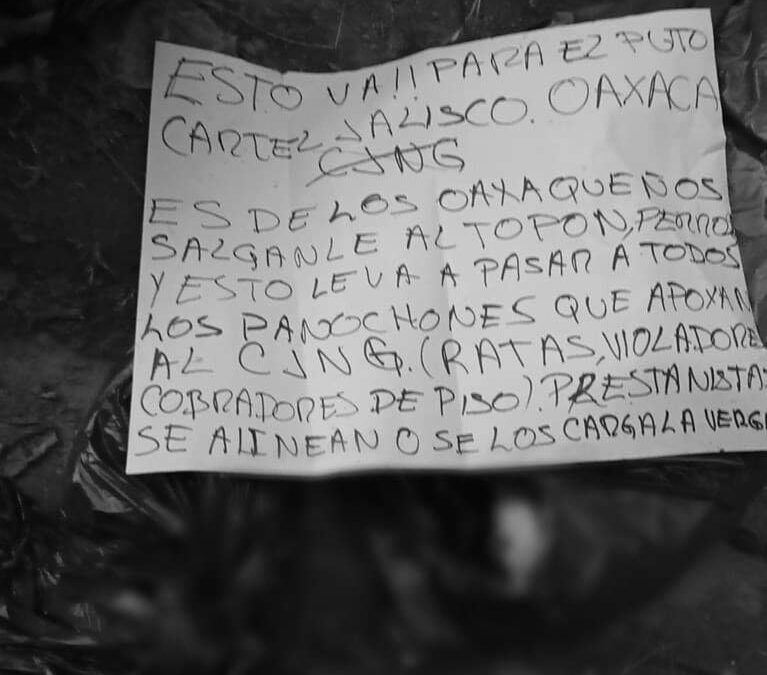 ESTO VA!! PARA EL PUTO
CARTEL JALISCO. OAXACA
CJNG
ES DE LOS OAXAQUEÑOS
SALGANLE AL TOPON, PERROS
Y ESTO LE VA A PASAR A TODOS
LOS PANOCHONES QUE APOYAN
AL CJNG. (RATAS, VIOLADORE
COBRADORES DE PISO). PRESTANISTAS
SE ALINEAN O SE LOS CARGA LA VERGA